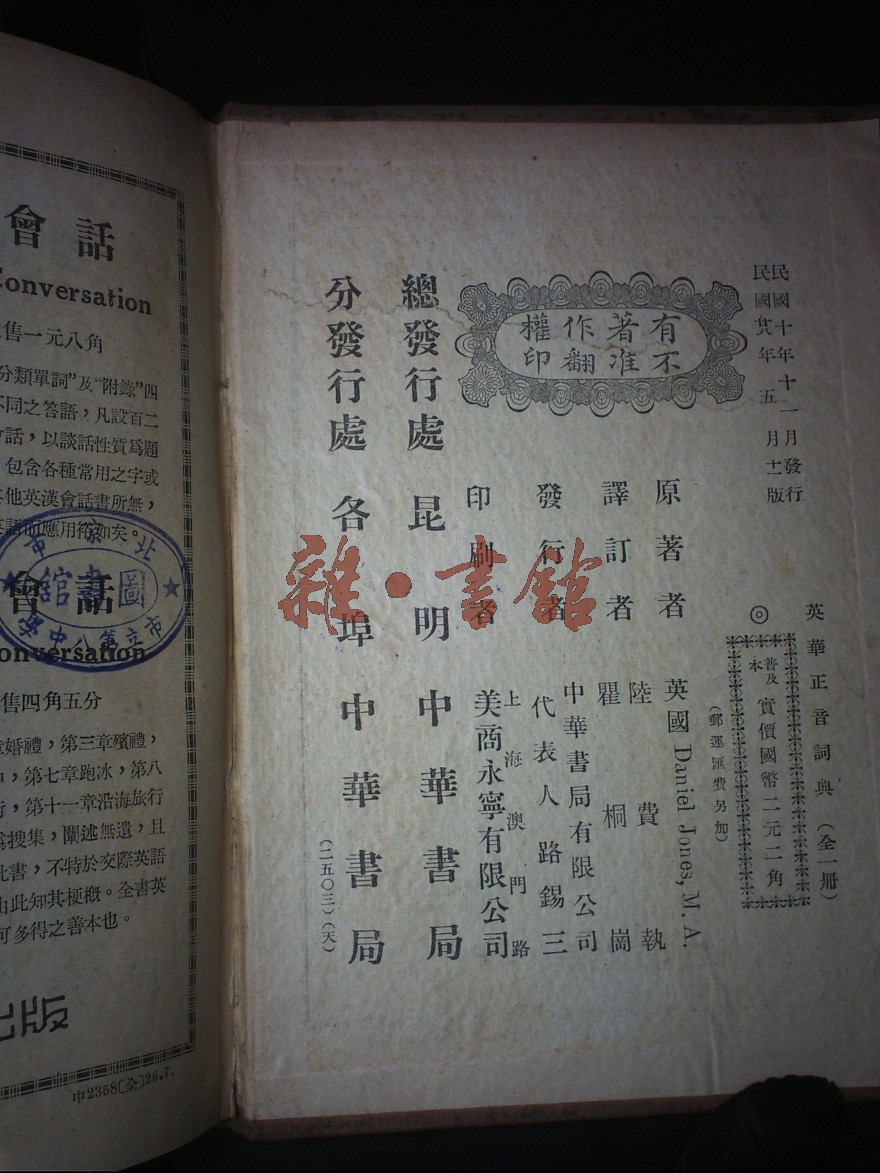 會話
Conversation
售一元八角
分類單詞”及“附錄”四
不同之答語，凡設百二
會話，以談話性質爲題
包含各種常用之字或
其他英漢會話書所無，
英語所應用裕如矣。
會話
onversation
售四角五分
章婚禮，第三章殯禮，
第七章跑冰，第八
行，第十一章沿海旅行
搜集，闡述無遺，且
此書，不特於交際英語
由此知其梗概。全書英
可多得之善本也。
出版
中2358〔全〕26.7.
北京市
市立第八中學
圖書館
民國十年十一月發行
年五月十二版
英華正音詞典（全一册）
◎普及本 實價國幣二元二角
（郵運匯費另加）
有著作權
不准翻印
原著者 英國 Daniel Jones, M. A.
譯訂者 陸費執
瞿桐崗
發行者 中華書局有限公司
代表人路錫三
印刷者 上海澳門路
美商永寧有限公司
總發行處 昆明中華書局
分發行處 各埠中華書局
（二五〇三）（天）
雜·書館